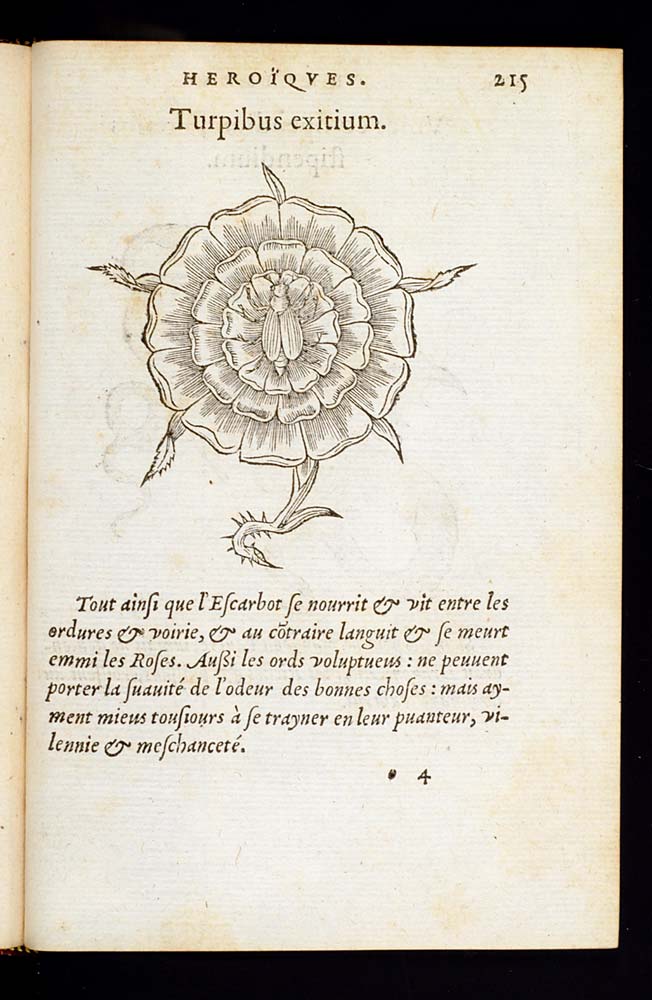 HEROÏQVES. 215
Turpibus exitium.
Tout ainſi que l'Eſcarbot ſe nourrit & vìt entre les
ordures & voirie, & au cõtraire languit & ſe meurt
emmi les Roſes. Außi les ords voluptueus : ne peuuent
porter la ſuauité de l'odeur des bonnes choſes : mais ay-
ment mieus touſiours à ſe trayner en leur puanteur, vi-
lennie & meſchanceté.
4